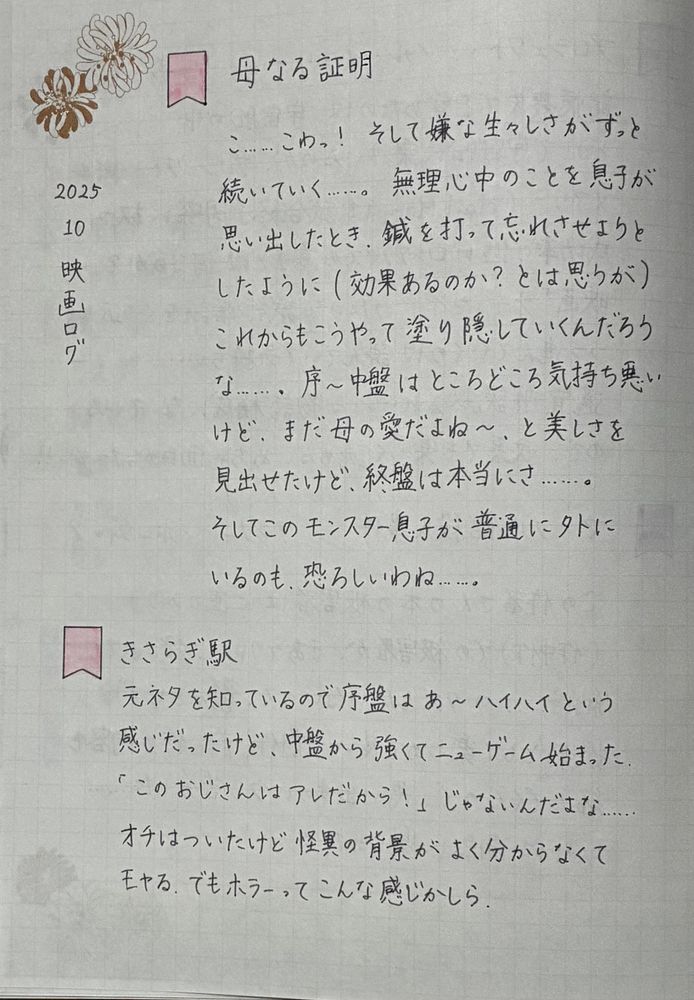 2025
10
映画ログ
母なる証明
こ……こわっ! そして嫌な生々しさがずっと
続いていく……。無理心中のことを息子が
思い出したとき、鍼を打って忘れさせようと
したように(効果あるのか?とは思うが)
これからもこうやって塗り隠していくんだろう
な……。序〜中盤はところどころ気持ち悪い
けど、まだ母の愛だよね〜、と美しさを
見出せたけど、終盤は本当にさ……。
そしてこのモンスター息子が普通に外に
いるのも、恐ろしいわね……。
きさらぎ駅
元ネタを知っているので序盤はあ〜ハイハイという
感じだったけど、中盤から強くてニューゲーム始まった。
「このおじさんはアレだから!」じゃないんだよな……
オチはついたけど怪異の背景がよく分からなくて
モヤる。でもホラーってこんな感じかしら。